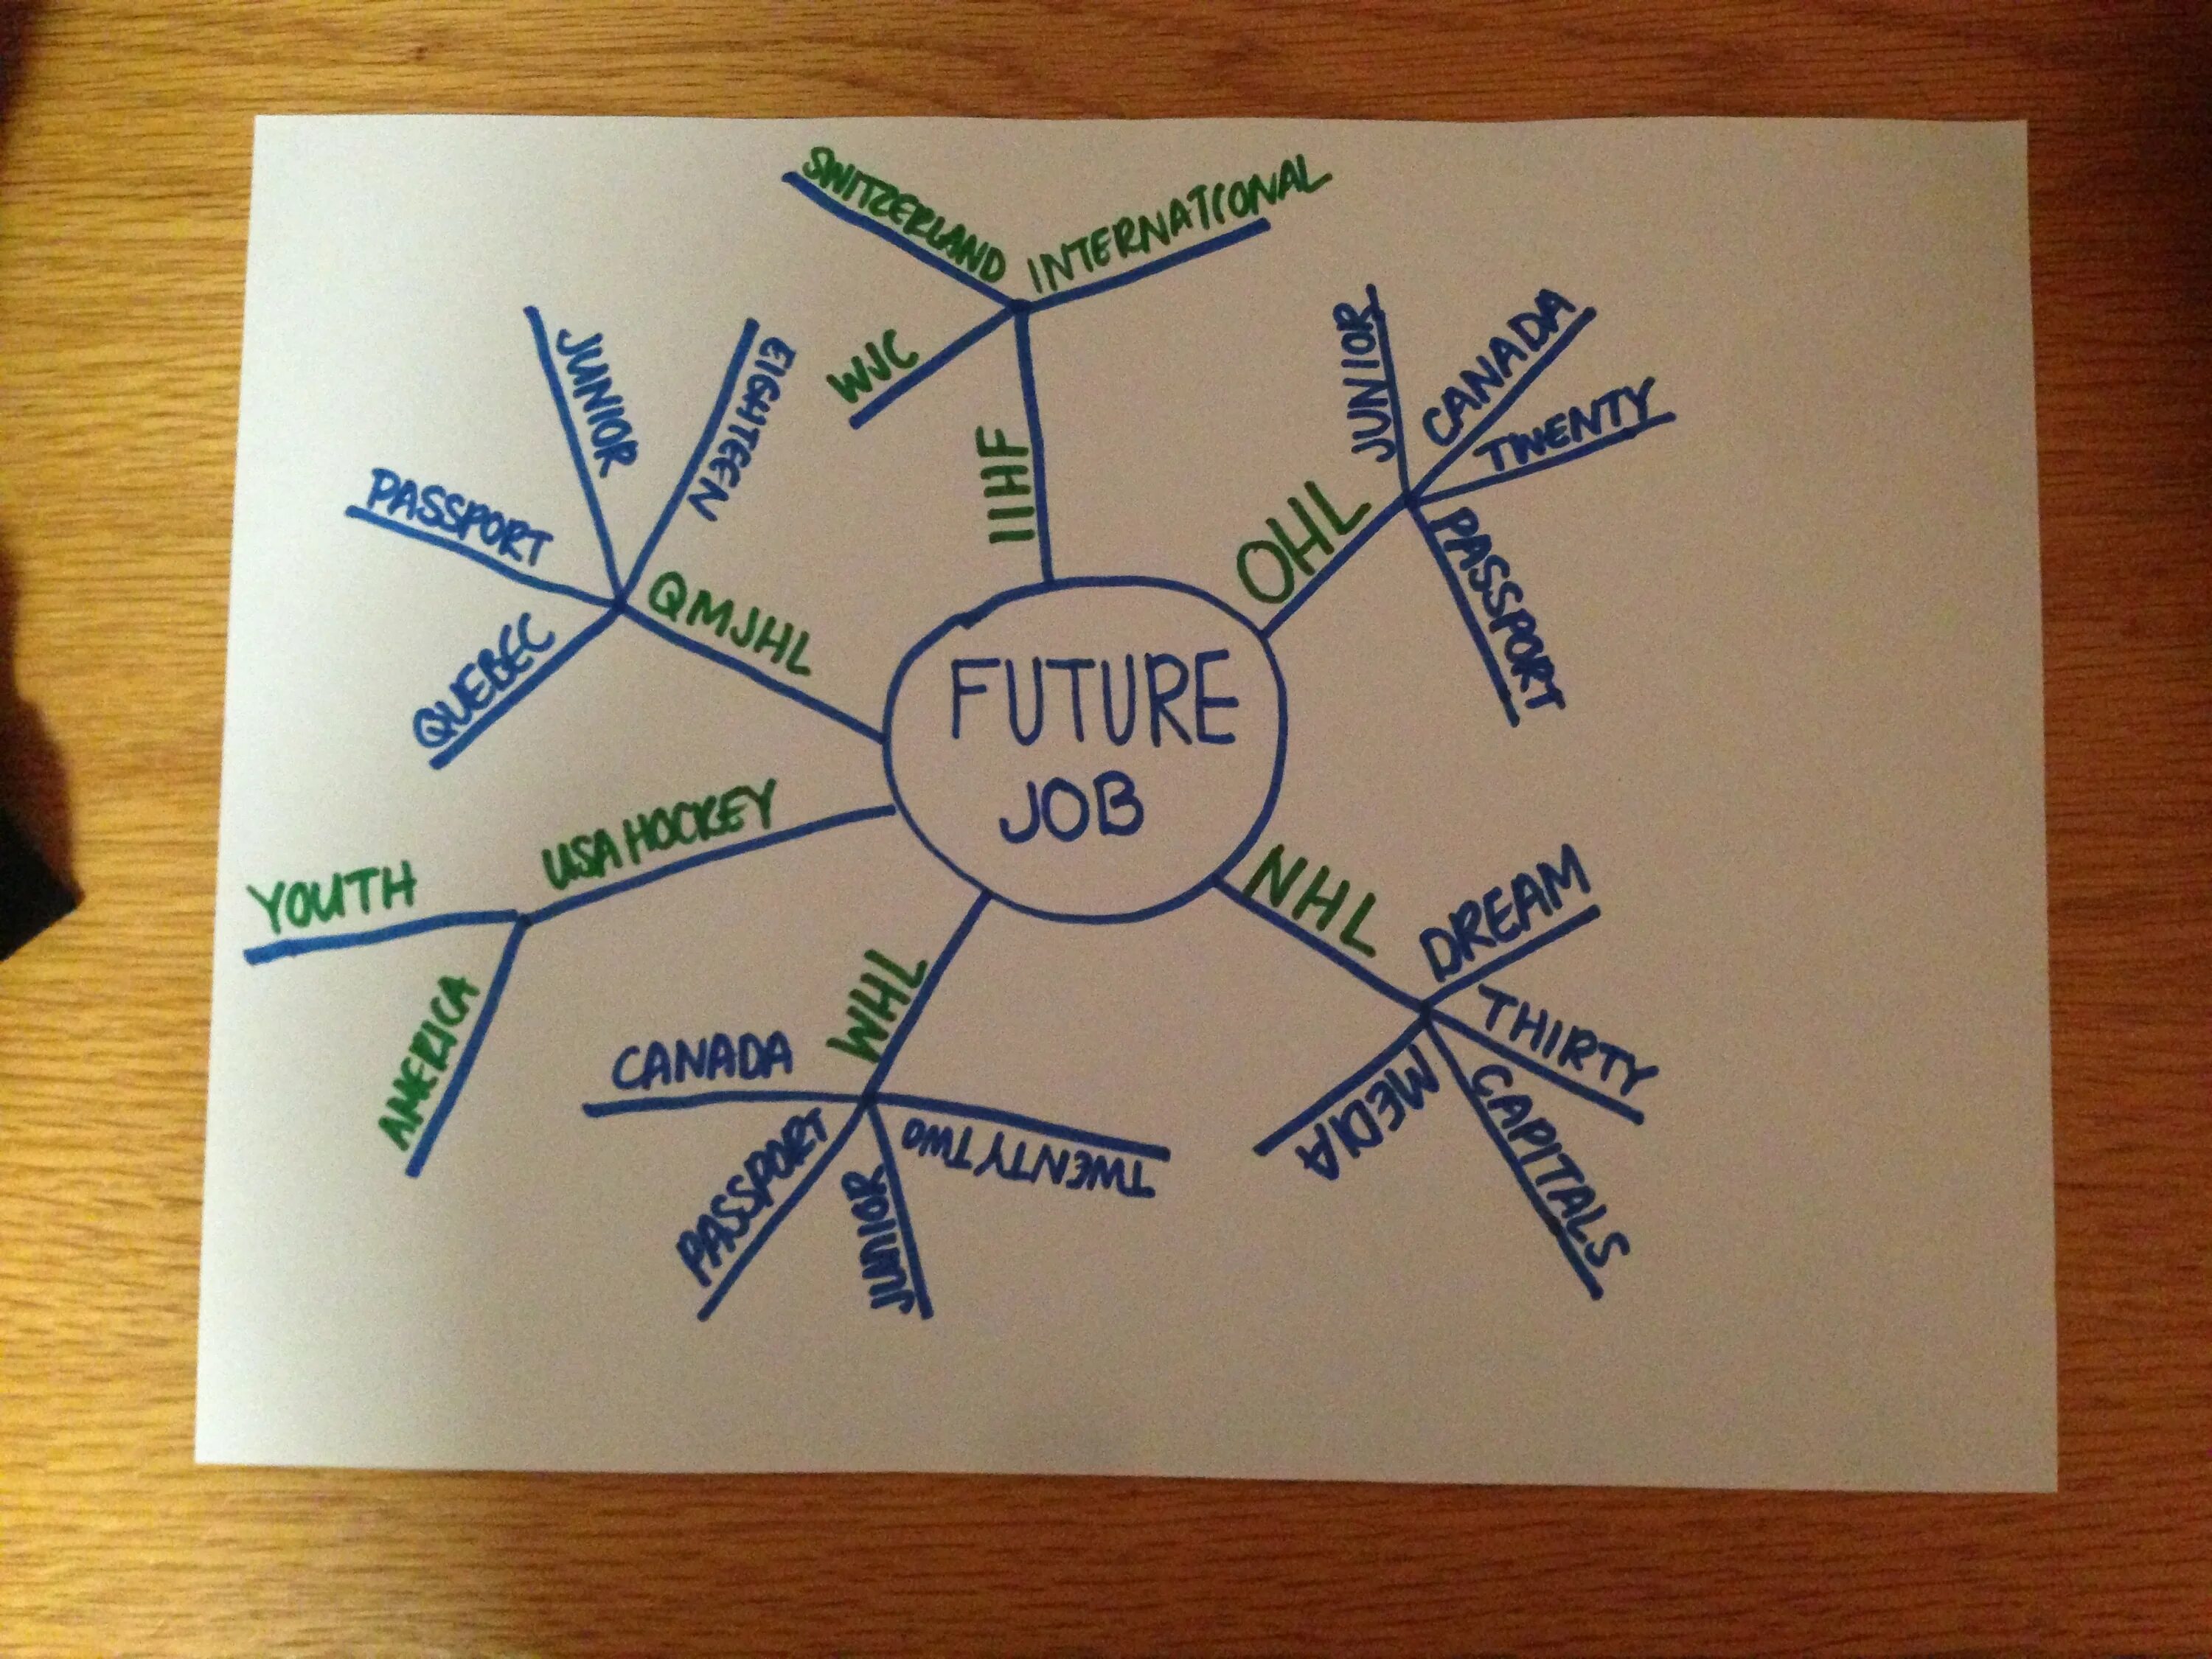 FUTURE
JOB
IIHF
SWITZERLAND
INTERNATIONAL
WJC
OHL
JUNIOR
CANADA
TWENTY
PASSPORT
NHL
DREAM
THIRTY
CAPITALS
MEDIA
WHL
TWENTY TWO
JUNIOR
PASSPORT
CANADA
USA HOCKEY
AMERICA
YOUTH
QMJHL
QUEBEC
PASSPORT
JUNIOR
EIGHTEEN